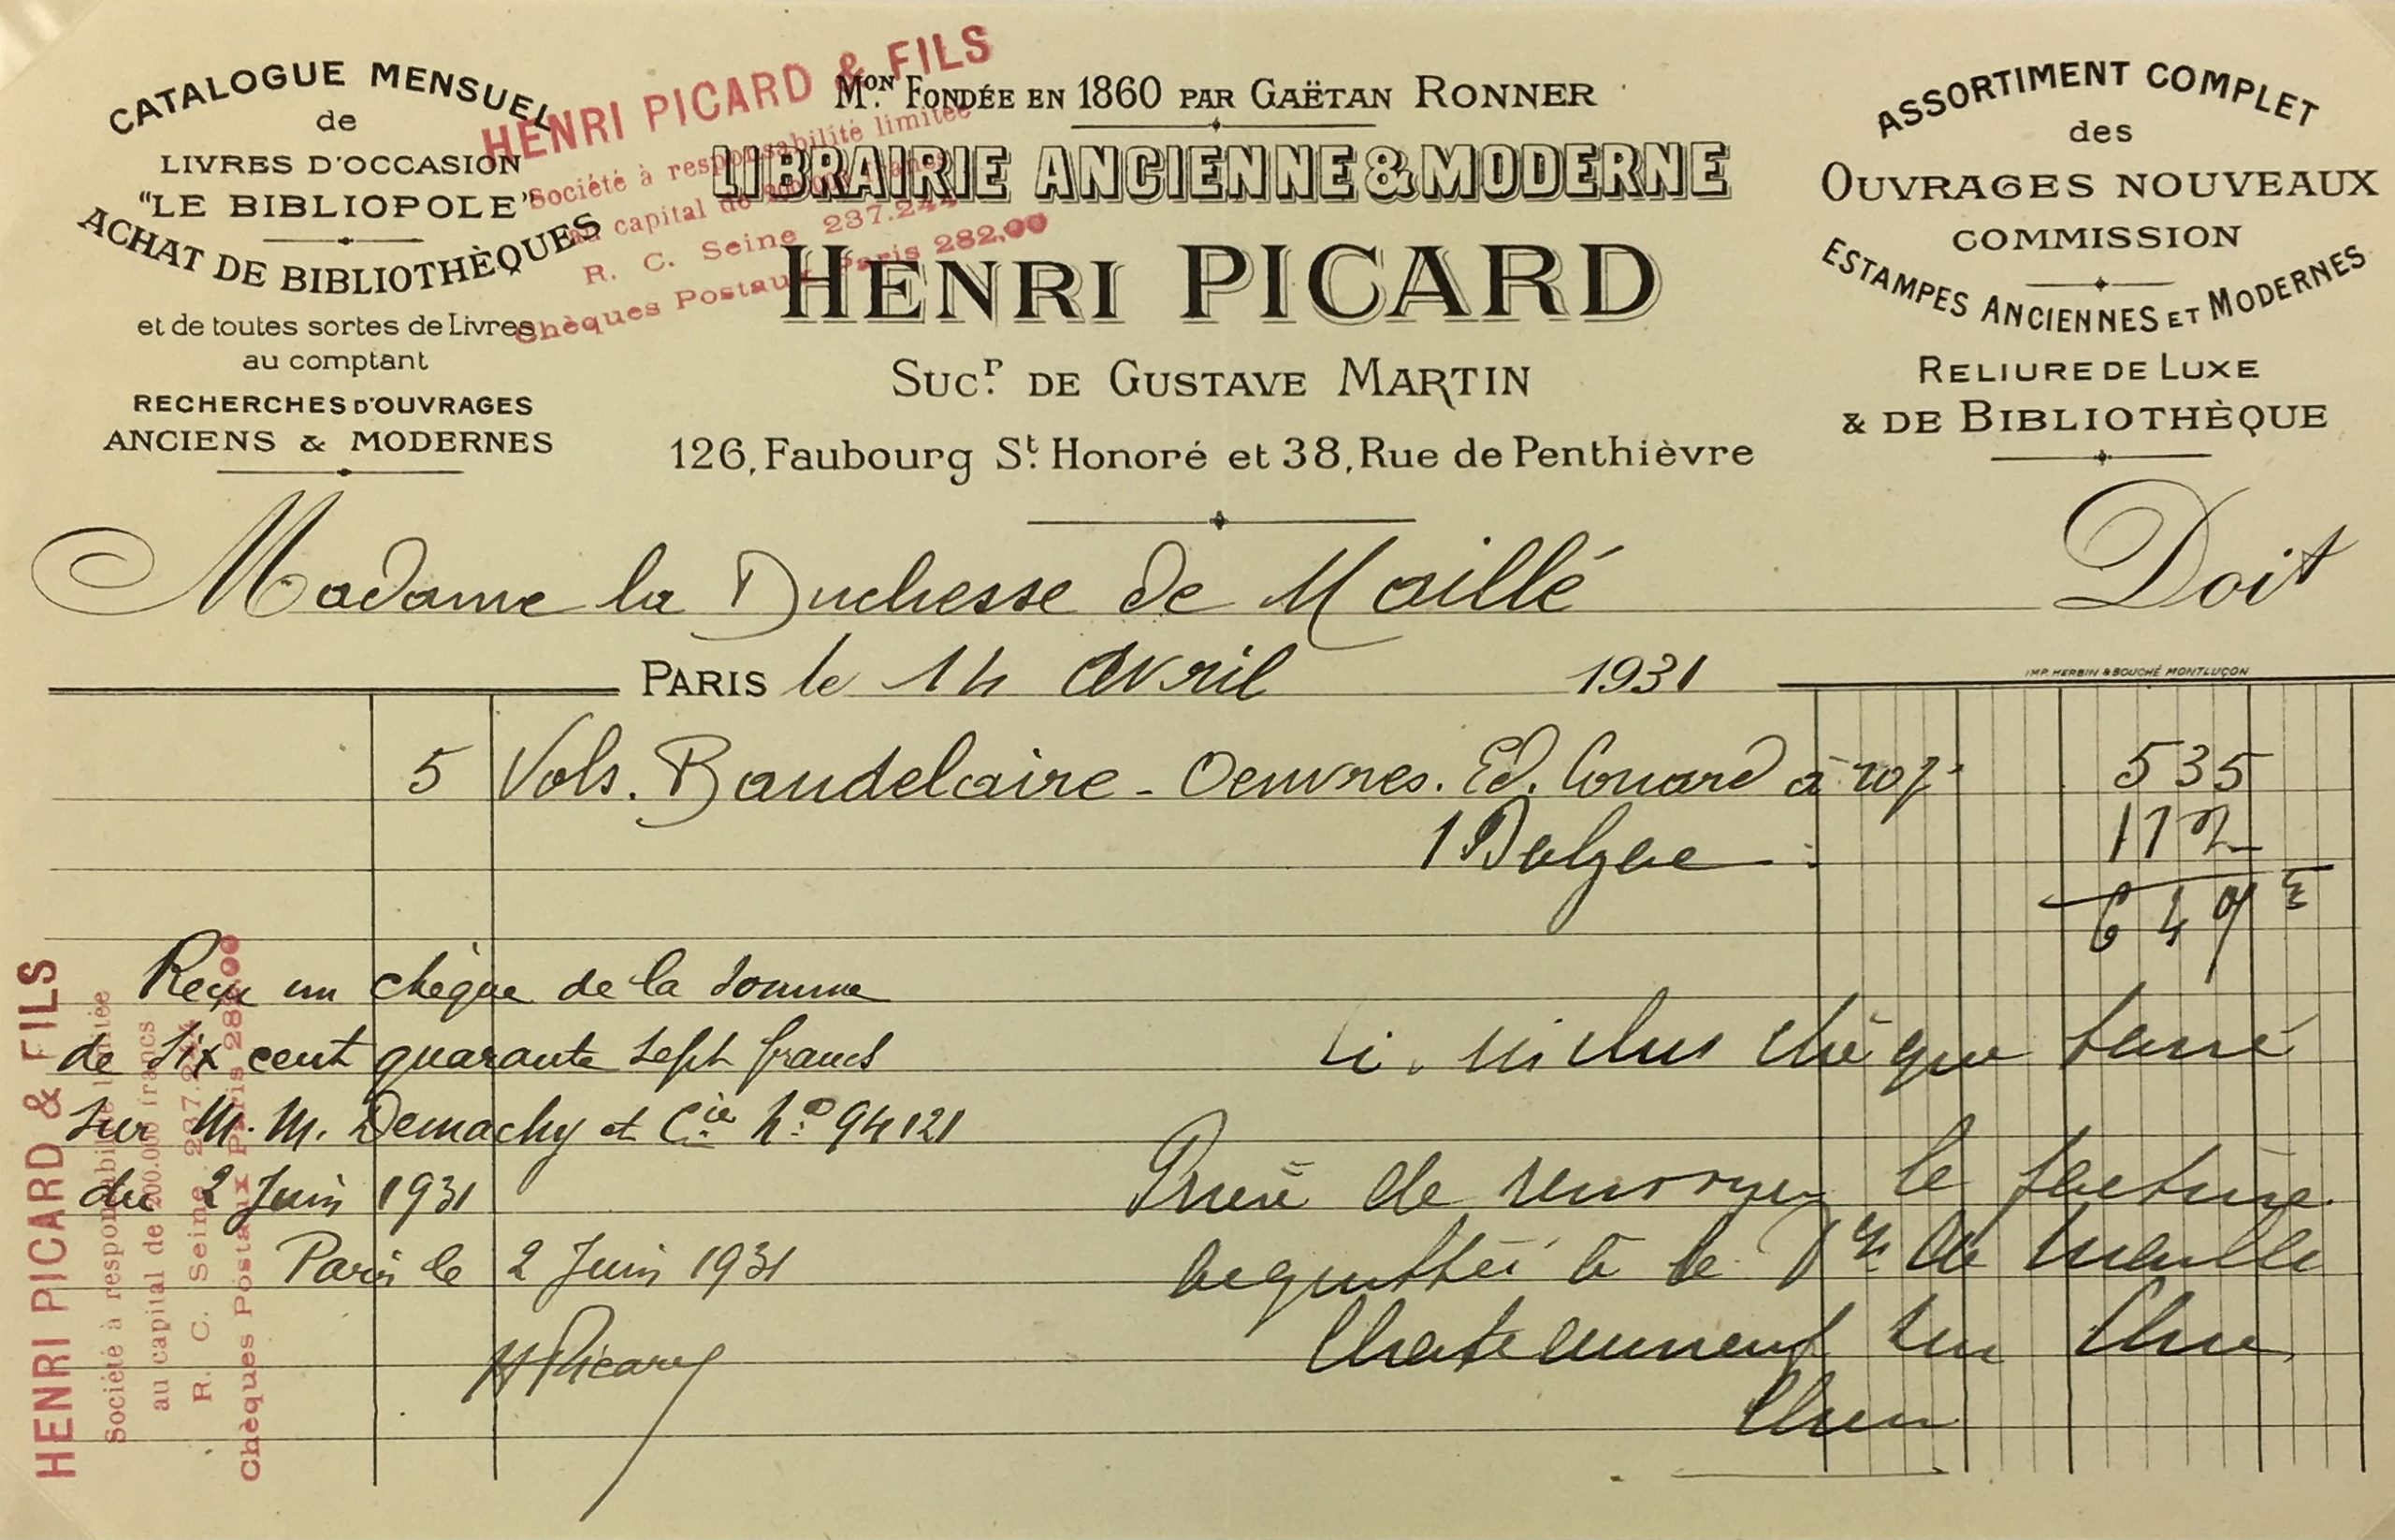 CATALOGUE MENSUEL
de
LIVRES D'OCCASION
"LE BIBLIOPOLE"
ACHAT DE BIBLIOTHÈQUES
et de toutes sortes de Livres
au comptant
RECHERCHES D'OUVRAGES
ANCIENS & MODERNES
HENRI PICARD & FILS
Société à responsabilité limitée
au capital de 200.000 francs
R. C. Seine 237.244
Chèques Postaux Paris 282,00
Mon. FONDÉE EN 1860 PAR GAËTAN RONNER
LIBRAIRIE ANCIENNE & MODERNE
HENRI PICARD
SUCr. DE GUSTAVE MARTIN
126, Faubourg St. Honoré et 38, Rue de Penthièvre
ASSORTIMENT COMPLET
des
OUVRAGES NOUVEAUX
COMMISSION
ESTAMPES ANCIENNES ET MODERNES
RELIURE DE LUXE
& DE BIBLIOTHÈQUE
Madame la Duchesse de Maillé Doit
PARIS le 14 Avril 1931
IMP. HERBIN & BOUCHÉ MONTLUÇON
5 Vols. Baudelaire - Oeuvres. Ed. Conard à 107 535
1 Balzac 112
647
Reçu un chèque de la somme
de Six cent quarante sept francs
sur M. M. Demachy et Cie No 94121
du 2 Juin 1931
Paris le 2 Juin 1931
H Picard
Ci. inclus chèque barré
Prière de renvoyer la facture
acquittée à la Dsse de Maillé
Chateauneuf sur Cher
Cher
HENRI PICARD & FILS
Société à responsabilité limitée
au capital de 200.000 francs
R. C. Seine 237.244
Chèques Postaux Paris 282,00